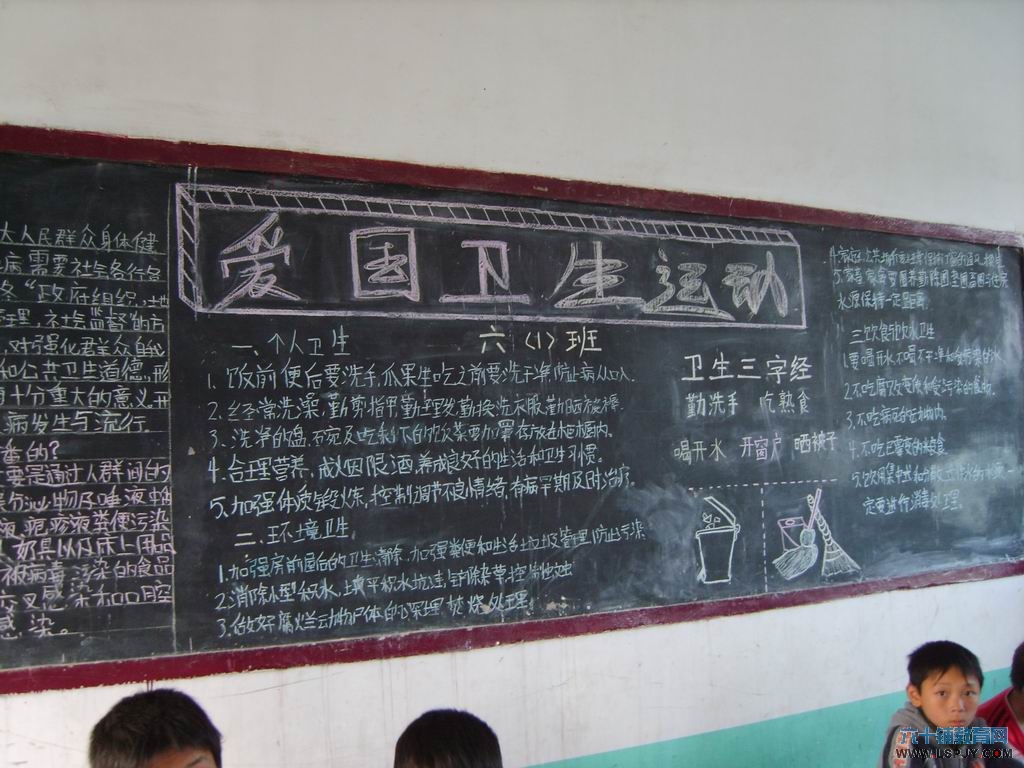 大人民群众身体健
病需要社会各行各
"政府组织,地
理,社会监督"的方
,对强化群众自我
和公共卫生道德,形
十分重大的意义,开
病发生与流行
番的?
要是通过人群间的
泌物及唾液中的
液,疱疹液粪便污染
奶具以及床上用品
被病毒污染的食品
交叉感染和口腔
感染。
爱国卫生运动
六(1)班
一、个人卫生
1、饭前便后要洗手,瓜果生吃之前要洗干净,防止病从口入。
2、经常洗澡,勤剪指甲,勤理发,勤换洗衣服,勤晒衣被
3、洗净的盘、碗及吃剩下的饭菜要加罩存放在柜橱内。
4、合理营养,戒烟限酒,养成良好的生活和卫生习惯。
5、加强体质锻炼,控制调节不良情绪,有病早期及时治疗。
二、环境卫生
1、加强房前屋后的卫生清除,加强粪便和生活垃圾管理,防止污染
2、消除小型积水,填平积水坑洼,铲除杂草
3、做好腐烂动物尸体的深埋,焚烧处理。
卫生三字经
勤洗手 吃熟食
喝开水 开窗户 晒被子
水源保持一定距离。
三饮食饮水卫生
1要喝开水,不喝不干净
2、不吃腐败变质和受污染的食物。
3、不吃病死的
4、不吃已霉变的粮食
定要进行消毒处理。
六十铺教育网
WWW.LSPJY.COM